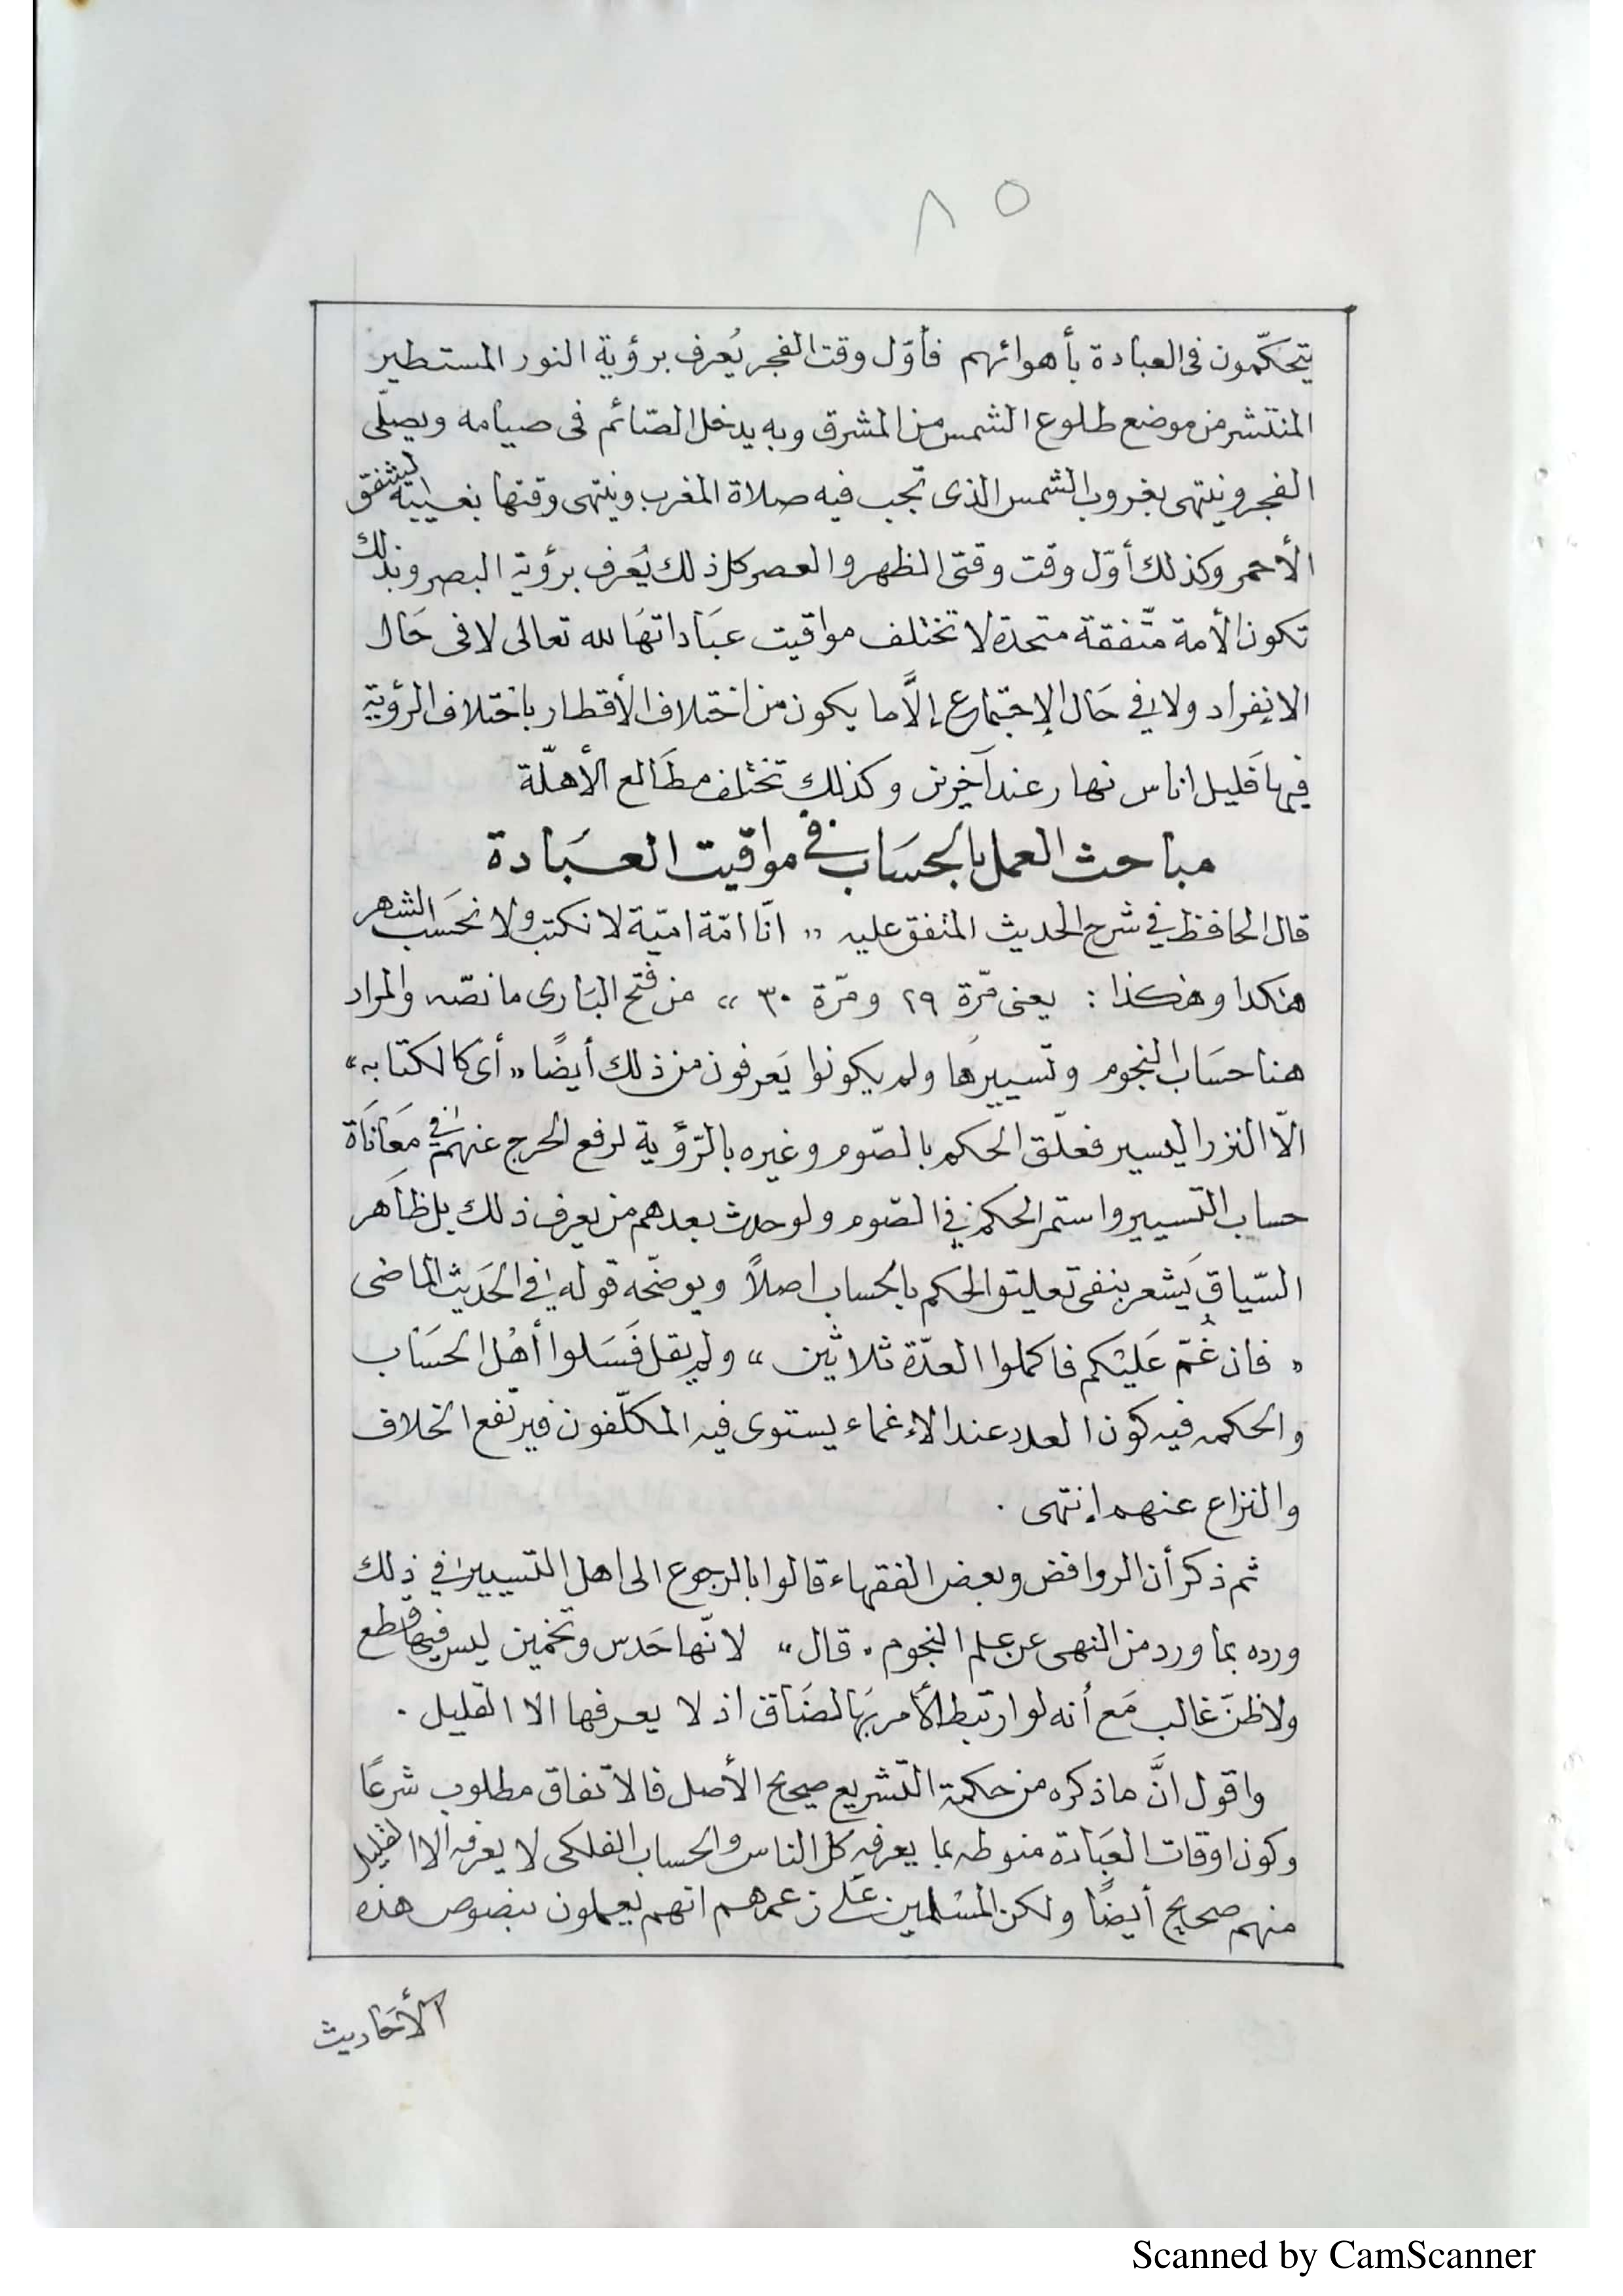 ٨٥
يتحكّمون فى العبادة بأهوائهم فأوّل وقت الفجر يُعرف برؤية النور المستطير
المنتشر من موضع طلوع الشمس من المشرق وبه يدخل الصّائم فى صيامه ويصلّى
الفجر وينتهى بغروب الشمس الذى تجب فيه صلاة المغرب وينتهى وقتها بغيبية الشفق
الأحمر وكذلك أوّل وقت وقتى الظهر والعصر كل ذلك يُعرف برؤية البصر وبذلك
تكون الأمة متّفقة متحدة لا تختلف مواقيت عبَاداتهَا لله تعالى لا فى حَال
الانفراد ولا في حَال الإجتماع إلَّا ما يكون من اختلاف الأقطار باختلاف الرؤية
فيهَا فليل اناس نهار عند آخرين وكذلك تختلف مطَالع الأهلّة
مباحث العمل بالحسَاب في مواقيت العبَادة
قال الحافظ في شرح الحديث المتفق عليه « انّا امّة اميّة لا نكتب ولا نحَسب الشهر
هٰكذا وهٰكذا : يعنى مّرة ٢٩ ومّرة ٣٠ » من فتح البَارى ما نصّه والمراد
هنا حسَاب النجوم وتسييرهَا ولم يكونوا يَعرفون من ذلك أيضًا « أى كالكتابه »
الّا النزر اليسير فعلّق الحكم بالصّوم وغيره بالرّؤية لرفع الحرج عنهم في معَانَاة
حساب التسيير واستمر الحكم في الصّوم ولو حدث بعدهم من يعرف ذلك بل ظَاهر
السّياق يَشعر بنفى تعليق الحكم بالحساب اصلاً ويوضّحه قوله في الحَديث الماضى
« فان غُمّ عَليْكم فاكملوا العدّة ثلاثين » ولم يقل فَسَلوا أهْل الحسَاب
والحكمه فيه كون العدد عند الإغماء يستوى فيه المكلّفون فيرتفع الخلاف
والنزاع عنهم إنتهى .
ثم ذكر أن الروافض وبعض الفقهاء قالوا بالرجوع الى اهل التسيير في ذلك
ورده بما ورد من النهى عن علم النجوم . قال » لانّها حَدس وتخمين ليس فيها قطع
ولا ظنّ غالب مَع أنه لو ارتبط الأمر بهَا لضَاق اذ لا يعرفها الا القليل .
واقول انَّ ما ذكره من حكمة التشريع صحيح الأصل فالاتفاق مطلوب شرعًا
وكون اوقات العبَادة منوطه بما يعرفه كل الناس والحساب الفلكى لا يعرفه الا القليل
منهم صحيح أيضًا ولكن المسْلمين عَلى زعمهم انهم يعملون بنصوص هذه
الأحَاديث
Scanned by CamScanner